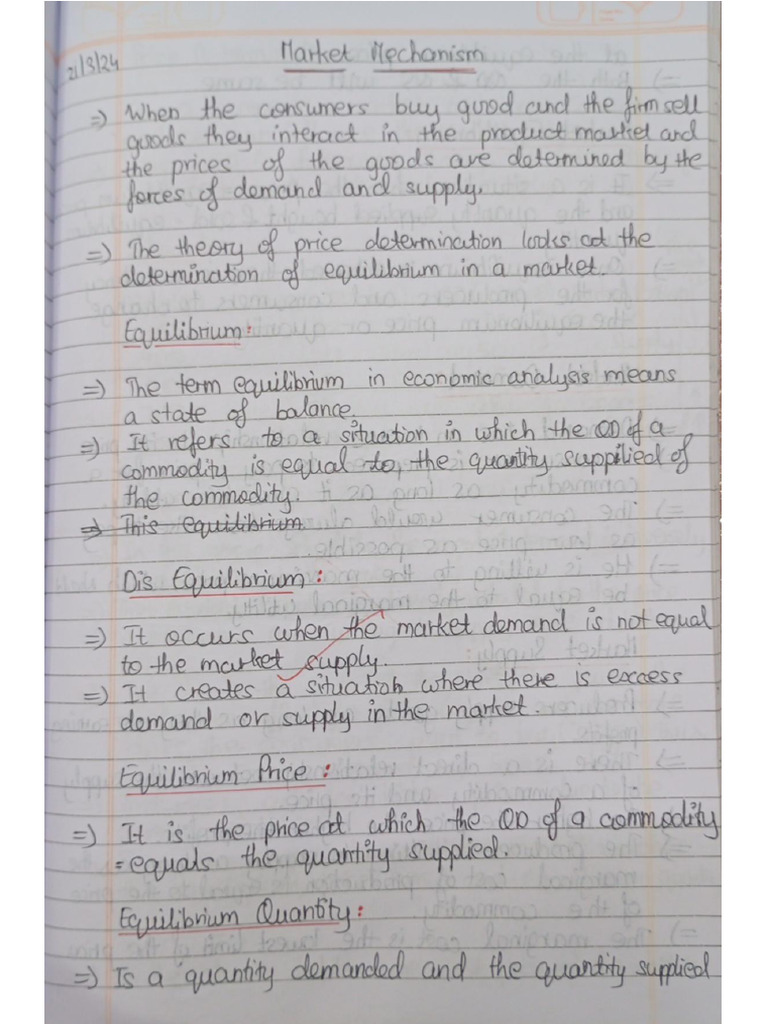 21/3/24
Market Mechanism
=> When the consumers buy good and the firm sell
goods they interact in the product market and
the prices of the goods are determined by the
forces of demand and supply.
=> The theory of price determination looks at the
determination of equilibrium in a market.
Equilibrium:
=> The term equilibrium in economic analysis means
a state of balance.
=> It refers to a situation in which the QD of a
commodity is equal to, the quantity suppilied of
the commodity.
=> This equilibrium
Dis Equilibrium:
=> It occurs when the market demand is not equal
to the market supply.
=> It creates a situation where there is excess
demand or supply in the market.
Equilibrium Price:
=> It is the price at which the QD of a commodity
= equals the quantity supplied.
Equilibrium Quantity:
=> Is a quantity demanded and the quantity supplied